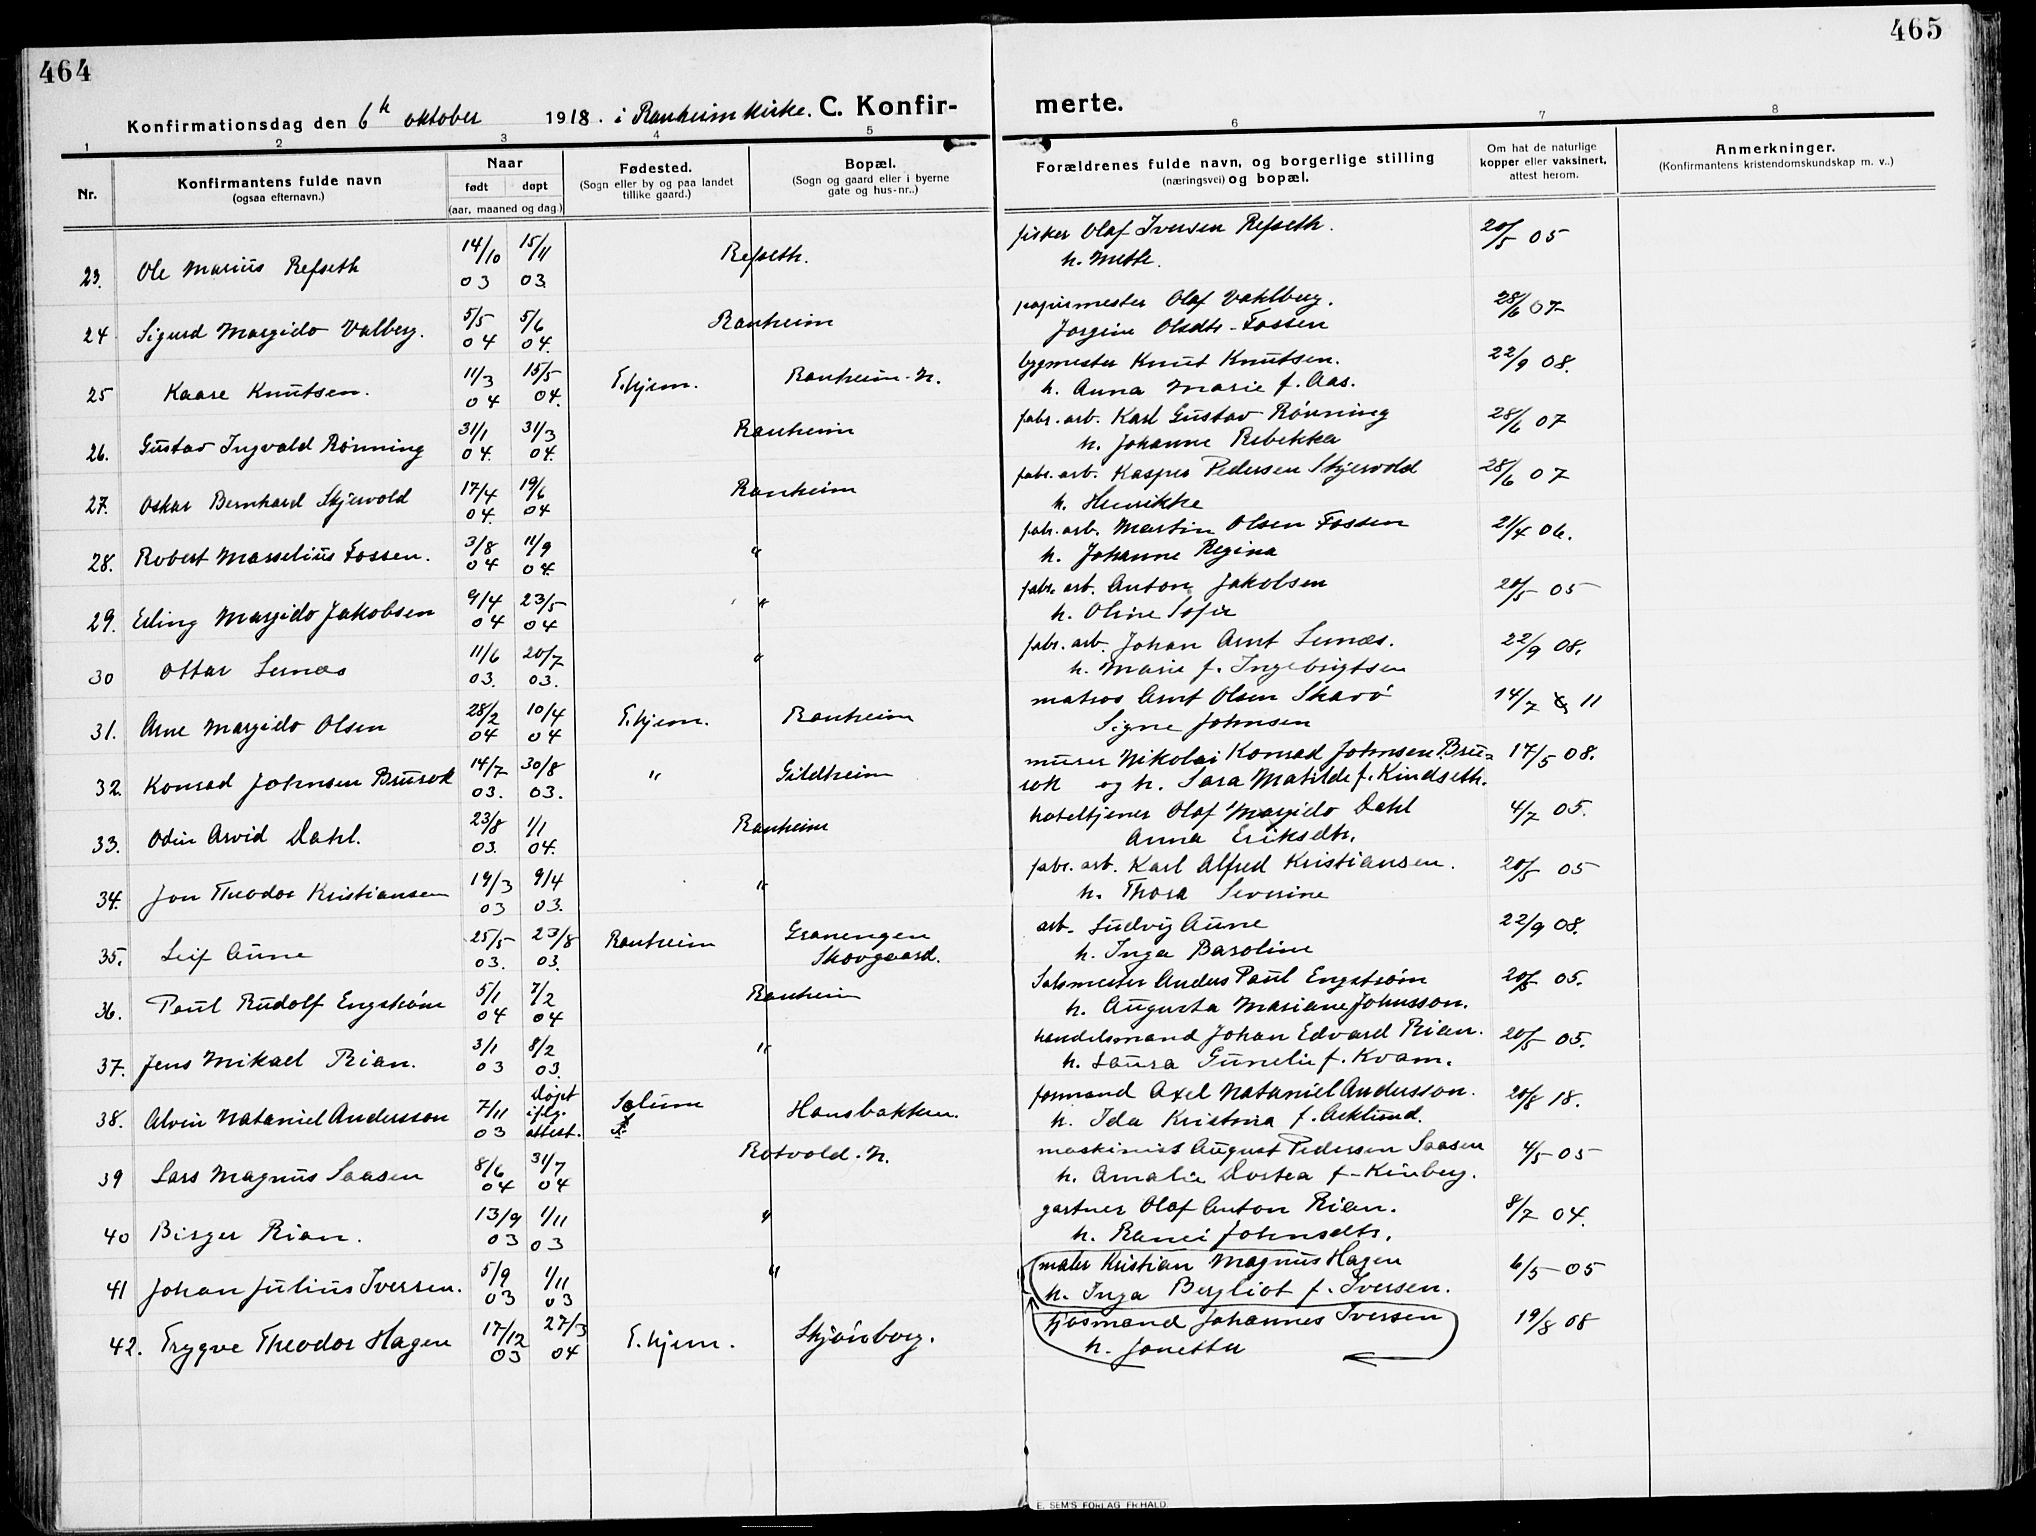 464
465
Konfirmationsdag den 6te oktober 1918. i Ranheim kirke. C. Konfir-
merte.
1 2 3 4 5 6 7 8
Nr.
Konfirmantens fulde navn
(ogsaa efternavn.)
Naar
født døpt
(aar, maaned og dag.)
Fødested.
(Sogn eller by og paa landet
tillike gaard.)
Bopæl.
(Sogn og gaard eller i byerne
gate og hus-nr..)
Forældrenes fulde navn, og borgerlige stilling
(næringsvei) og bopæl.
Om hat de naturlige
kopper eller vaksinert,
attest herom.
Anmerkninger.
(Konfirmantens kristendomskundskap m. v..)
23. Ole Marius Refseth 14/10 03 15/11 03. Refseth. fisker Olaf Iversen Refseth. 20/5 05
h. Mette.
24 Sigurd Margido Valberg. 5/5 04 5/6 04. Ranheim papirmester Olaf Vahlberg. 28/6 07
Jorgine Olsdtr. Fossen
25 Kaare Knutsen. 11/3 04 15/5 04. T.hjem. Ranheim. N. bygmester Knut Knutsen. 22/9 08.
h. Anna Marie f. Aas.
26. Gustav Ingvald Rønning 31/1 04. 31/3 04. Ranheim fabr. arb. Karl Gustav Rønning 28/6 07
h. Johanne Rebekka
27. Oskar Bernhard Skjervold 17/4 04. 19/6 04 Ranheim fabr. arb. Kasper Pedersen Skjervold 28/6 07
h. Henrikke
28. Robert Marselius Fossen. 3/8 04 11/9 04. " fabr. arb. Martin Olsen Fossen 21/4 06.
h. Johanne Regina
29. Erling Margido Jakobsen 9/4 04 23/5 04 " fabr. arb. Anton Jakobsen 20/5 05
h. Oline Sofie
30 Ottar Lernes 11/6 03. 20/7 03. " fabr. arb. Johan Arnt Lernæs. 22/9 08.
h. Marie f. Ingebrigtsen
31. Arne Margido Olsen 28/2 04 10/4 04 T.hjem. Ranheim matros Arnt Olsen Skarø 14/7 11
Signe Johnsen
32. Konrad Johnsen Brurok 14/7 03. 30/8 03. " Gildheim murer Nikolai Konrad Johnsen Bru= 17/5 08.
rok og h. Sara Matilde f. Kindseth.
33. Odin Arvid Dahl. 23/8 03. 1/1 04. Ranheim hoteltjener Olaf Margido Dahl 4/7 05.
Anna Eriksdtr.
34. Jon Theodor Kristiansen 19/3 03 9/4 03. " fabr. arb. Karl Alfred Kristiansen. 20/5 05
h. Thora Severine
35. Leif Aune 25/5 03. 23/8 03. Ranheim Granengen arb. Ludvig Aune 22/9 08.
Skovgaard. h. Inga Baroline
36. Paul Rudolf Engstrøm 5/1 04 7/2 04 Ranheim Salsmester Anders Paul Engstrøm 20/5 05.
h. Augusta Mariane Johnsson.
37. Jens Mikael Rian. 3/1 03 8/2 03. " handelsmand Johan Edvard Rian. 20/5 05.
h. Laura Gunelie f. Kvam.
38. Alvin Nataniel Andersson 7/11 03 Døpt iflg. attest. Solum Hansbakken. formand Axel Nataniel Andersson. 20/8 18.
h. Ida Kristina f. Acklund.
39 Lars Magnus Saasen 8/6 04 31/7 04 Rotvold. N. maskinist August Pedersen Saasen 4/5 05
h. Amalie Dortea f. Kinberg.
40 Birger Rian. 13/9 03 1/11 03 " gartner Olaf Anton Rian. 8/7 04.
h. Ranei Johnsdtr.
41 Johan Julius Iversen. 5/9 03 1/11 03 " maler Kristian Magnus Hagen 6/5 05
h. Inga Bergliot f. Iversen.
42. Trygve Theodor Hagen 17/12 03 27/3 04 T.hjem. Skjønborg. fjøsmand Johannes Iversen 19/8 08
h. Jonetta
E. SEM'S FORLAG FR.HALD